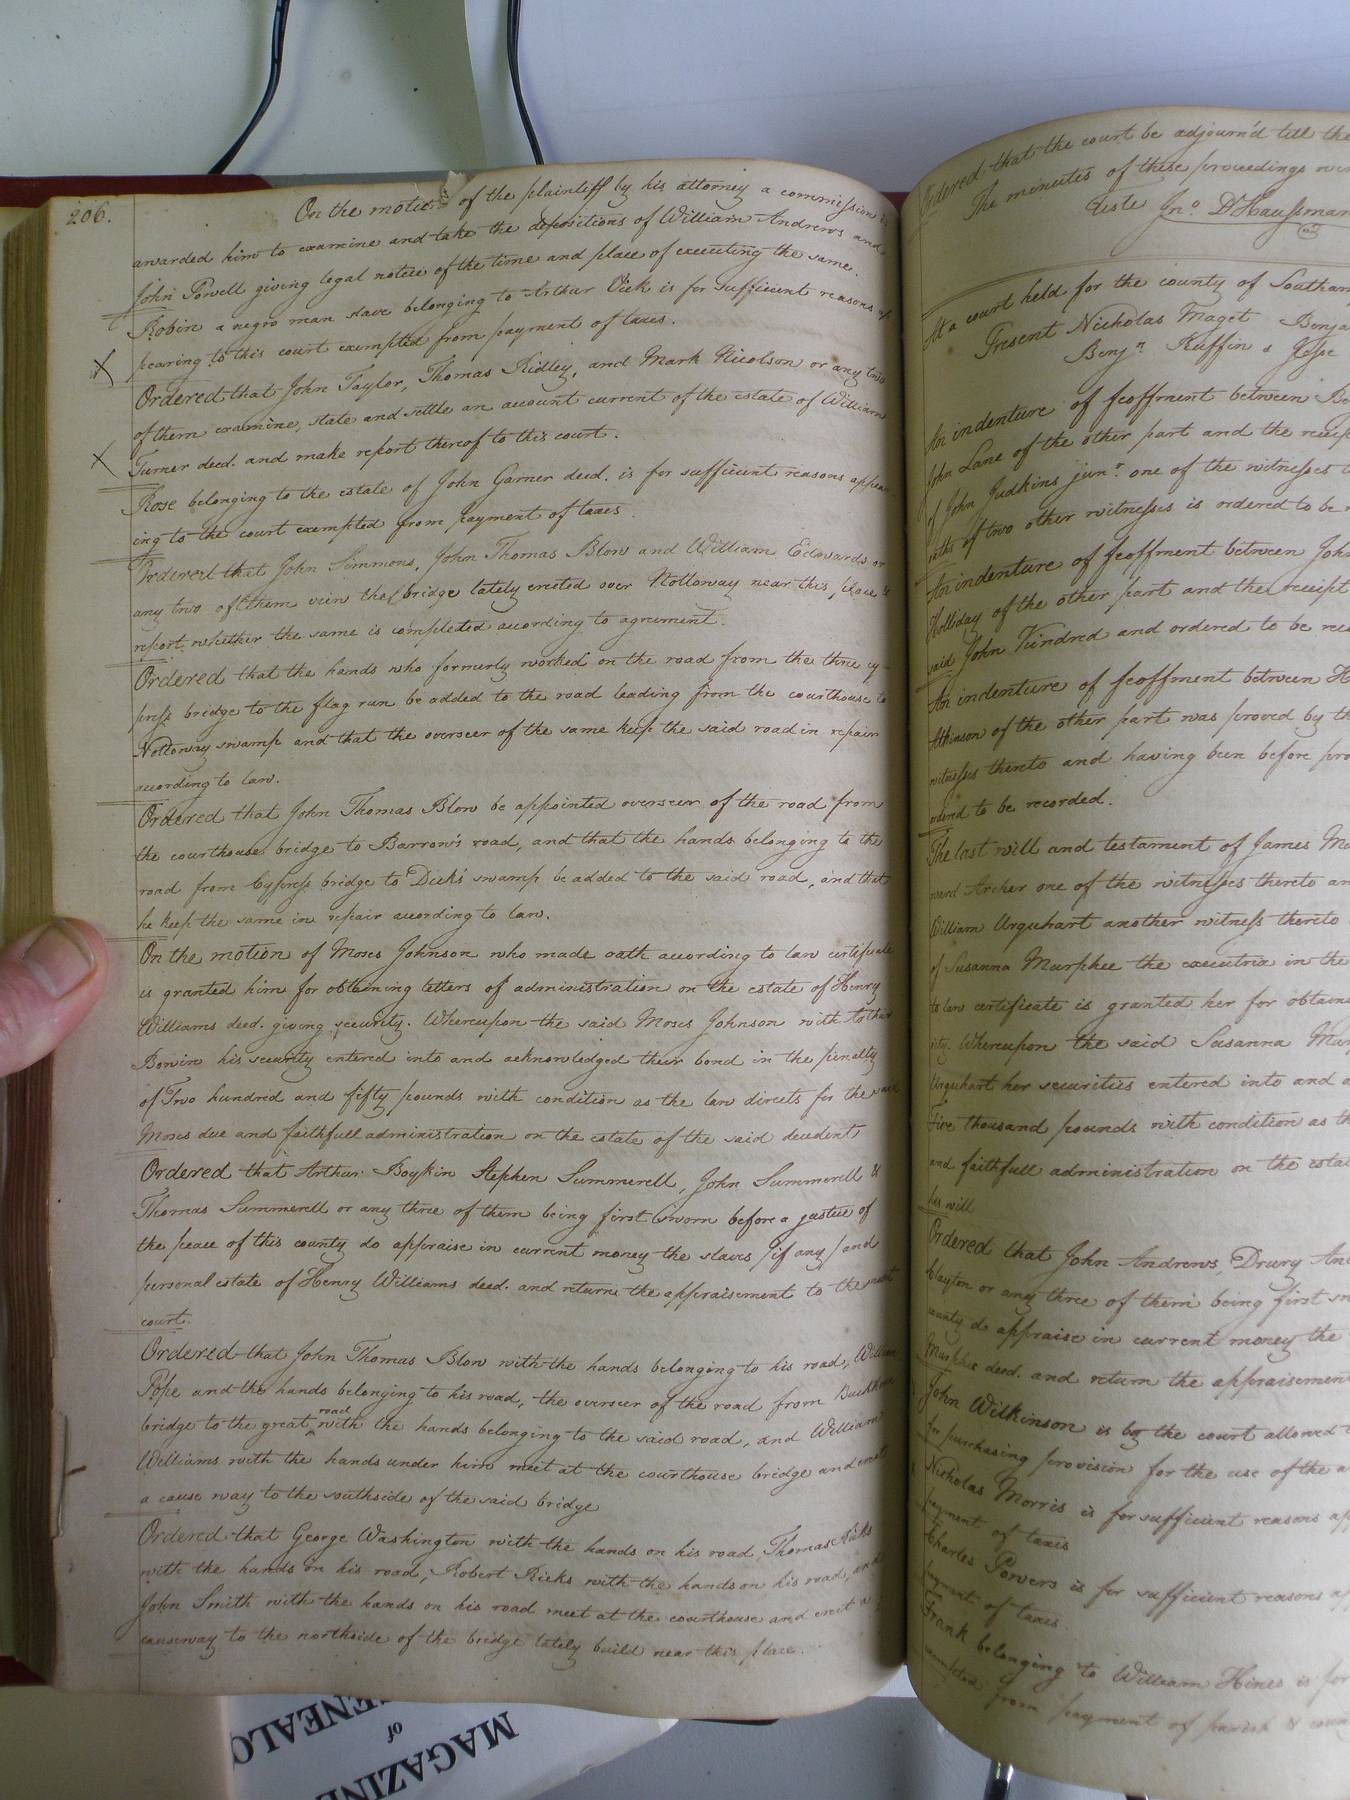 206.
On the motion of the plaintiff by his attorney a commission is
awarded him to examine and take the depositions of William Andrews and
John Powell giving legal notice of the time and place of executing the same.
Robin a negro man slave belonging to Arthur Vick is for sufficient reasons ap
pearing to this court exempted from payment of taxes.
X
Ordered that John Taylor, Thomas Ridley, and Mark Nicolson or any two
of them examine, state and settle an account current of the estate of William
Turner deed. and make report thereof to this court.
X
Rose belonging to the estate of John Garner deed. is for sufficient reasons appear
ing to the court exempted from payment of taxes.
Ordered that John Simmons, John Thomas Blow and William Edwards or
any two of them view the bridge lately erected over Nottoway near this place &
report whether the same is completed acording to agreement.
Ordered that the hands who formerly worked on the road from the three cy
press bridge to the flag run be added to the road leading from the courthouse to
Nottoway swamp and that the overseer of the same keep the said road in repair
acording to law.
Ordered that John Thomas Blow be appointed overseer of the road from
the courthouse bridge to Barrow's road, and that the hands belonging to the
road from Cypress bridge to Dick's swamp be added to the said road, and that
he keep the same in repair acording to law.
On the motion of Moses Johnson who made oath acording to law certificate
is granted him for obtaining letters of administration on the estate of Henry
Williams deed. giving security. Whereupon the said Moses Johnson with
Bowin his security entered into and acknowledged their bond in the penalty
of Two hundred and fifty pounds with condition as the law directs for the said
Moses due and faithfull administration on the estate of the said decedent
Ordered that Arthur Boykin Stephen Summerell, John Summerell &
Thomas Summerell or any three of them being first sworn before a justice of
the peace of this county do appraise in current money the slaves /if any/ and
personal estate of Henry Williams deed. and return the appraisement to the next
court.
Ordered that John Thomas Blow with the hands belonging to his road, William
Pope and the hands belonging to his road, the overseer of the road from
bridge to the great road with the hands belonging to the said road, and William
Williams with the hands under him meet at the courthouse bridge and erect
a cause way to the southside of the said bridge
Ordered that George Washington with the hands on his road, Thomas Ricks
with the hands on his road, Robert Ricks with the hands on his road, and
John Smith with the hands on his road meet at the courthouse and erect a
causeway to the northside of the bridge lately build near this place.
Ordered that the court be adjourn'd till the
The minutes of these proceedings were
Teste Jno D'Haussman
At a court held for the county of Southam
Present Nicholas Maget Benja
Benjn Ruffin & Jesse
An indenture of feoffment between
John Lane of the other part and the receipt
of John Judkins junr. one of the witnesses
oaths of two other witnesses is ordered to be
An indenture of feoffment between John
Holliday of the other part and the receipt
said John Kindred and ordered to be
An indenture of feoffment between H
Atkinson of the other part was proved by th
witnesses thereto and having been before pro
ordered to be recorded.
The last will and testament of James Mu
ward Archer one of the witnesses thereto an
William Urquhart another witness thereto
of Susanna Murphee the executrix in the
to law certificate is granted her for obtain
Whereupon the said Susanna Mur
Urquhart her securities entered into and a
Five thousand pounds with condition as th
and faithfull administration on the estat
his will
Ordered that John Andrews, Drury And
Clayton or any three of them being first sw
county do appraise in current money the
Murphee deed. and return the appraisement
John Wilkinson is by the court allowed
for purchasing provision for the use of the
Nicholas Morris is for sufficient reasons ap
payment of taxes
Charles Powers is for sufficient reasons a
payment of taxes
Frank belonging to William Hines is for
exempted from payment of parish & coun
MAGAZINE
of
GENEALO